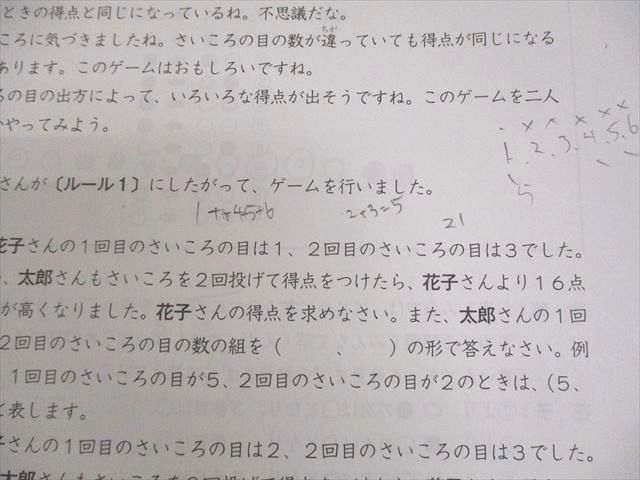 ときの得点と同じになっているね。不思議だな。
ころに気づきましたね。さいころの目の数が違っていても得点が同じになる
あります。このゲームはおもしろいですね。
の目の出方によって、いろいろな得点が出そうですね。このゲームを二人
やってみよう。
1.2.3.4.5.6
5
さんが〔ルール1〕にしたがって、ゲームを行いました。
2+3=5
21
花子さんの1回目のさいころの目は1、2回目のさいころの目は3でした。
、太郎さんもさいころを2回投げて得点をつけたら、花子さんより16点
が高くなりました。花子さんの得点を求めなさい。また、太郎さんの1回
2回目のさいころの目の数の組を（　　、　　）の形で答えなさい。例
、1回目のさいころの目が5、2回目のさいころの目が2のときは、（5、
と表します。
子さんの1回目のさいころの目は2、2回目のさいころの目は3でした。